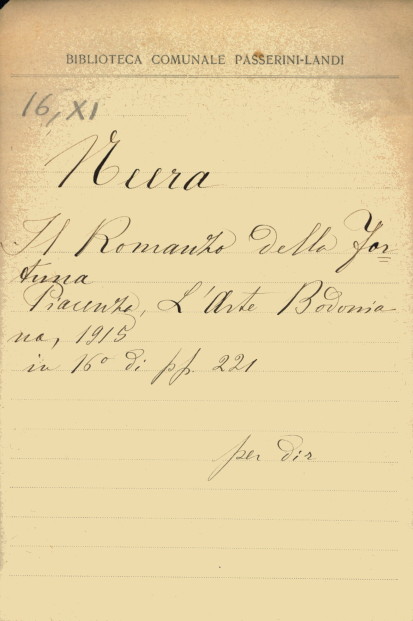 BIBLIOTECA COMUNALE PASSERINI-LANDI
16, XI
Neera
Il Romanzo della For=
tuna
Piacenza, L'Arte Bodonia
na, 1915
in 16º di pp. 221
per dir